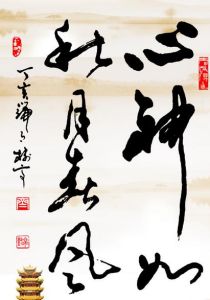 心神如
秋月春风
丁亥